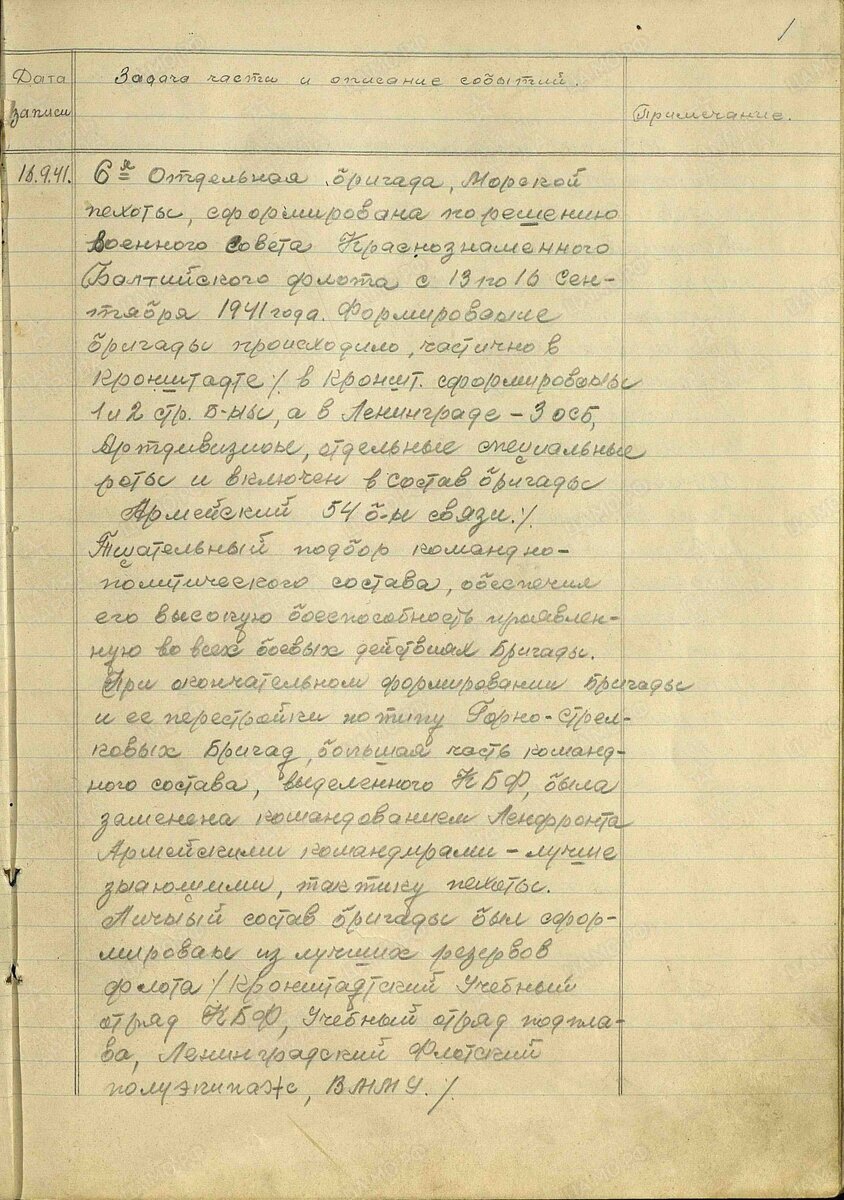 1
Дата записи
Задача части и описание событий.
Примечание.
16.9.41.
6я Отдельная бригада, Морской
пехоты, сформирована по решению
военного совета Краснознаменного
Балтийского флота с 13 по 16 Сен-
тября 1941 года. Формирование
бригады происходило, частично в
Кронштадте /. в Кроншт. сформированы
1 и 2 стр. Б-ны, а в Ленинграде - 3 осб,
Артдивизион, отдельные специальные
роты и включен в состав бригады
Армейский 54 б-н связи. /.
Тщательный подбор командно-
политического состава, обеспечил
его высокую боеспособность проявлен-
ную во всех боевых действиях Бригады.
При окончательном формировании Бригады
и ее перестройки по типу Горно-стрел-
ковых Бригад, большая часть команд-
ного состава, выделенного КБФ, была
заменена командованием Ленфронта
Армейскими командирами - лучше
знающими, тактику пехоты.
Личный состав бригады был сфор-
мирован из лучших резервов
флота /. Кронштадтский Учебный
отряд КБФ, Учебный отряд подпла-
ва, Ленинградский Флотский
полуэкипаж, ВММУ. /.